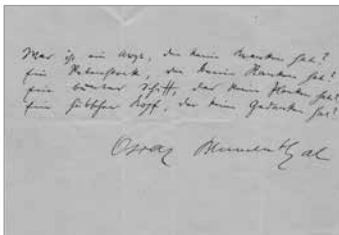 Was ist ein Arzt, der keine Kranken hat?
Ein Rosenstock, der keine Ranken hat!
Ein Schiff, das keine Planken hat!
Ein hübscher Kopf, der kein Gedanken hat!
Oscar Blumenthal